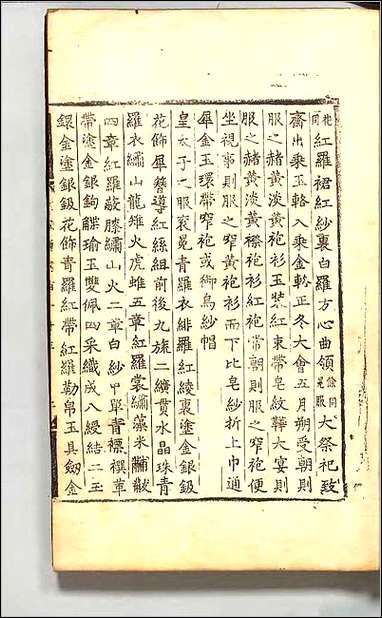 紅羅裙紅紗裏白羅方心曲領餘同冕服大祭祀致
齋出乘玉輅入乘金輅正冬大會五月朔受朝則
服之赭黃淡黃袍衫玉裝紅束帶皂紋鞾大宴則
服之赭黃淡黃䙆袍衫紅袍常朝則服之窄袍便
坐視事則服之窄黃袍衫而下比皂紗折上巾通
犀金玉環帶窄袍或御烏紗帽
皇太子之服袞冕青羅衣緋羅紅綾裏塗金銀鈒
花飾犀簪導紅絲組前後九旒二纊貫水晶珠青
羅衣繡山龍雉火虎蜼五章紅羅裳繡藻米黼黻
四章紅羅蔽膝繡山火二章白紗中單青褾襈革
帶塗金銀鉤䚢瑜玉雙佩四采織成大綬結二玉
環金塗銀鈒花飾青羅紅帶紅羅勒帛玉具劍金